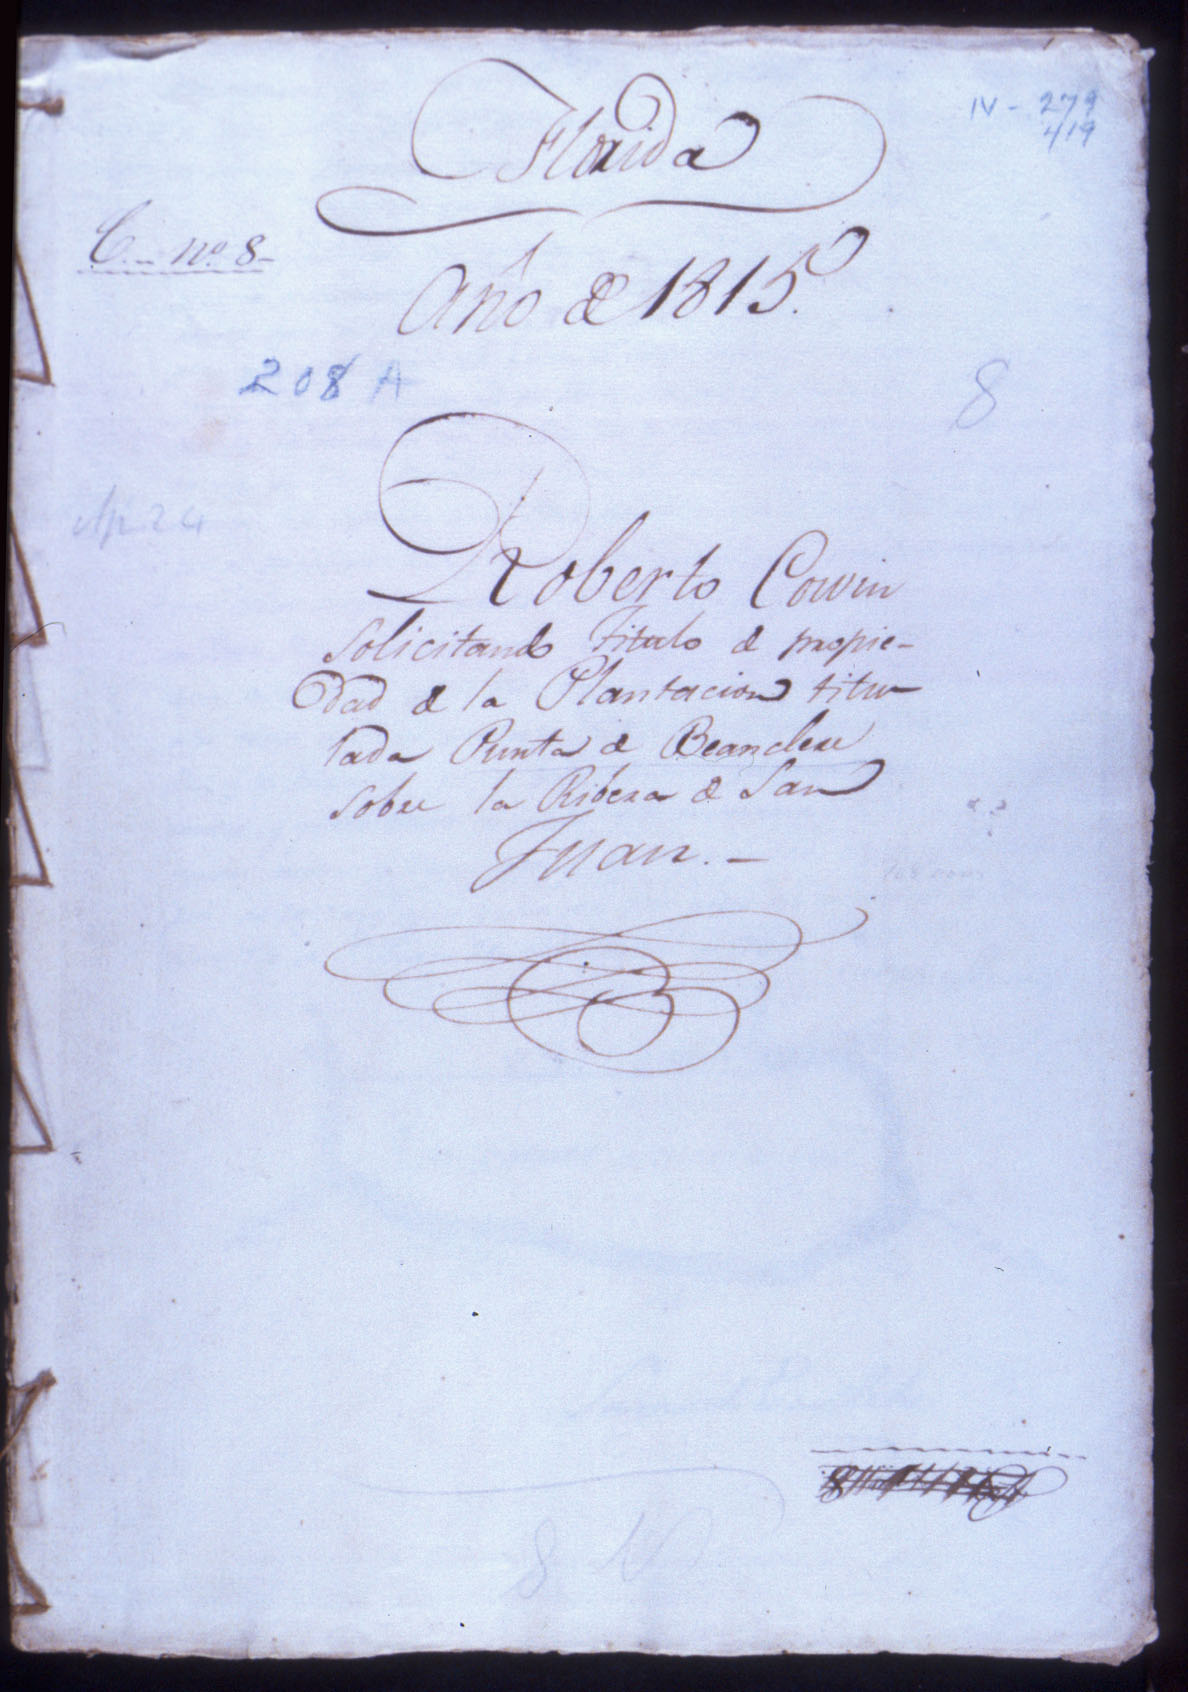 Florida
IV - 279
419
C. nº 8
Año de 1815.
208 A
8
Roberto Cowin
Solicitando Titulo de propie-
dad de la Plantacion titu-
lada Punta de
sobre la Ribera de San
Juan. -
8